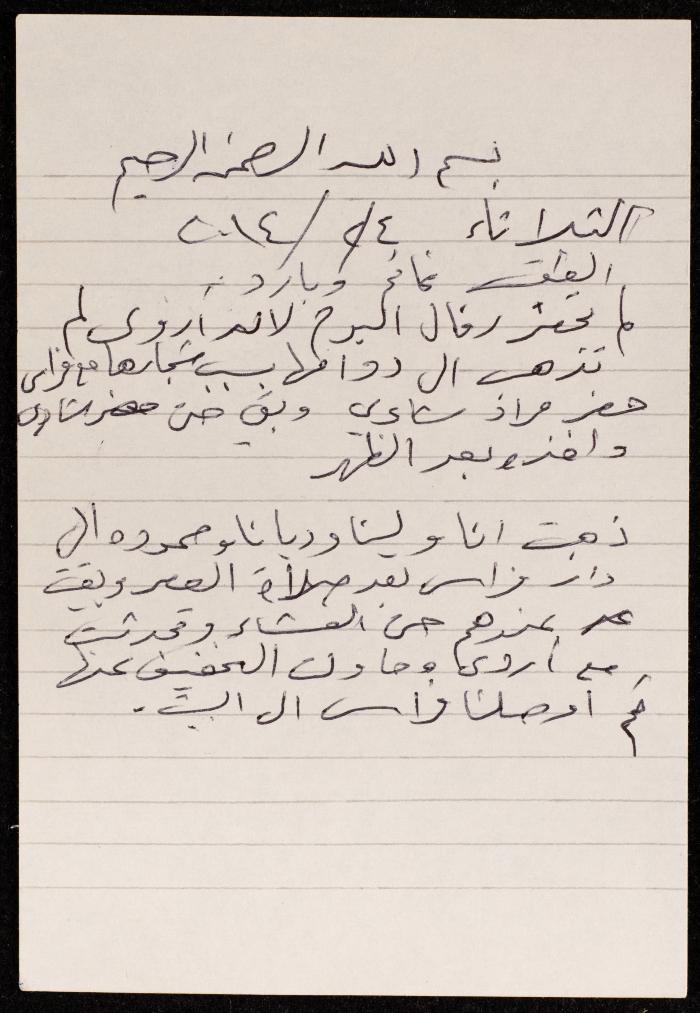 بسم الله الرحمن الرحيم
الثلاثاء ٤/ /٢٠١٤
الطقس غائم وبارد
لم تحضر رفال اليوم لانه أروى لم
تذهب الى دوامها بسبب شجارها مع فراس
حضر مراد شاوي وبقي حتى حضر شادي
واخذه بعد الظهر
ذهبت انا ولينا وديانا ومحموده الى
دار فراس بعد صلاة العصر وبقيت
عندهم حتى العشاء وتحدثت
مع أروى وحاولت التخفيف عنها
ثم أوصلنا فراس الى البيت.